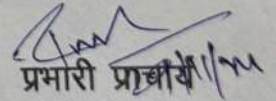 प्रभारी प्राचार्य